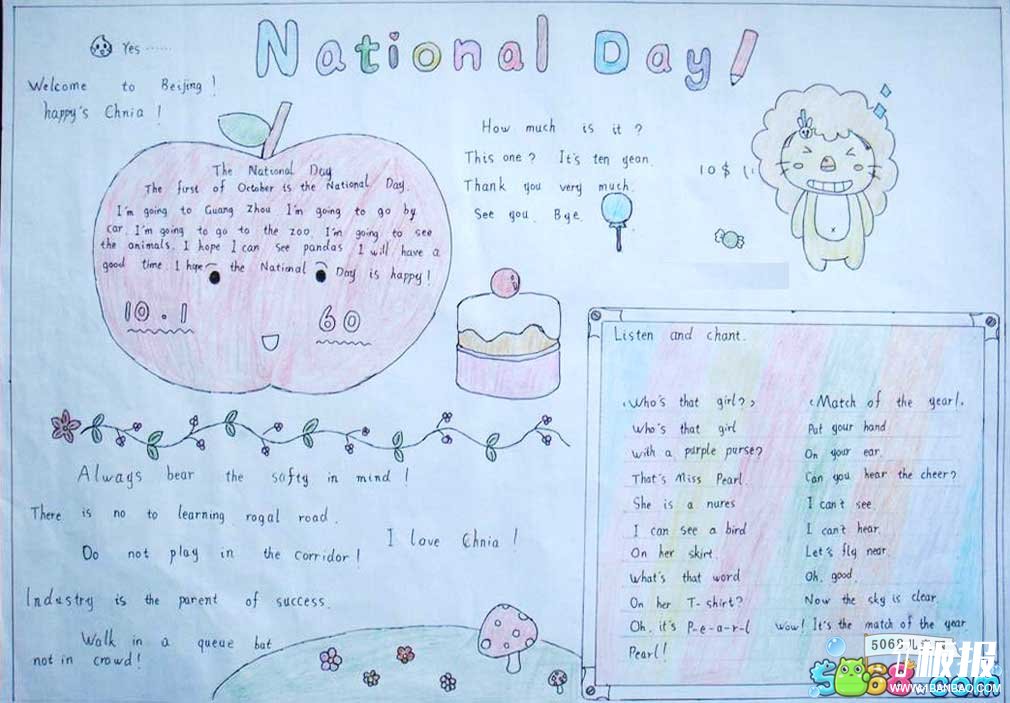 National Day!
Yes ......
Welcome to Beijing!
happy's Chnia!
The National Day
The first of October is the National Day.
I'm going to Guang Zhou I'm going to go by
car. I'm going to go to the zoo. I'm going to see
the animals. I hope I can see pandas I will have a
good time. I hope the National Day is happy!
10.1
60
How much is it?
This one? It's ten yean.
Thank you very much.
See you. Bye.
10 $
Always bear the safty in mind!
There is no to learning rogal road.
Do not play in the corridor!
I love Chnia!
Industry is the parent of success.
Walk in a queue bat
not in crowd!
Listen and chant.
<Who's that girl?>
Who's that girl
with a purple purse?
That's Miss Pearl.
She is a nures
I can see a bird
On her skirt.
What's that word
On her T-shirt?
Oh, it's P-e-a-r-l
Pearl!
<Match of the year!.
Put your hand
On your ear.
Can you hear the cheer?
I can't see.
I can't hear.
Let's fly near.
Oh, good.
Now the sky is clear.
Wow! It's the match of the year.
5068儿童网
板报
5068.com
WWW.1BANBAO.COM